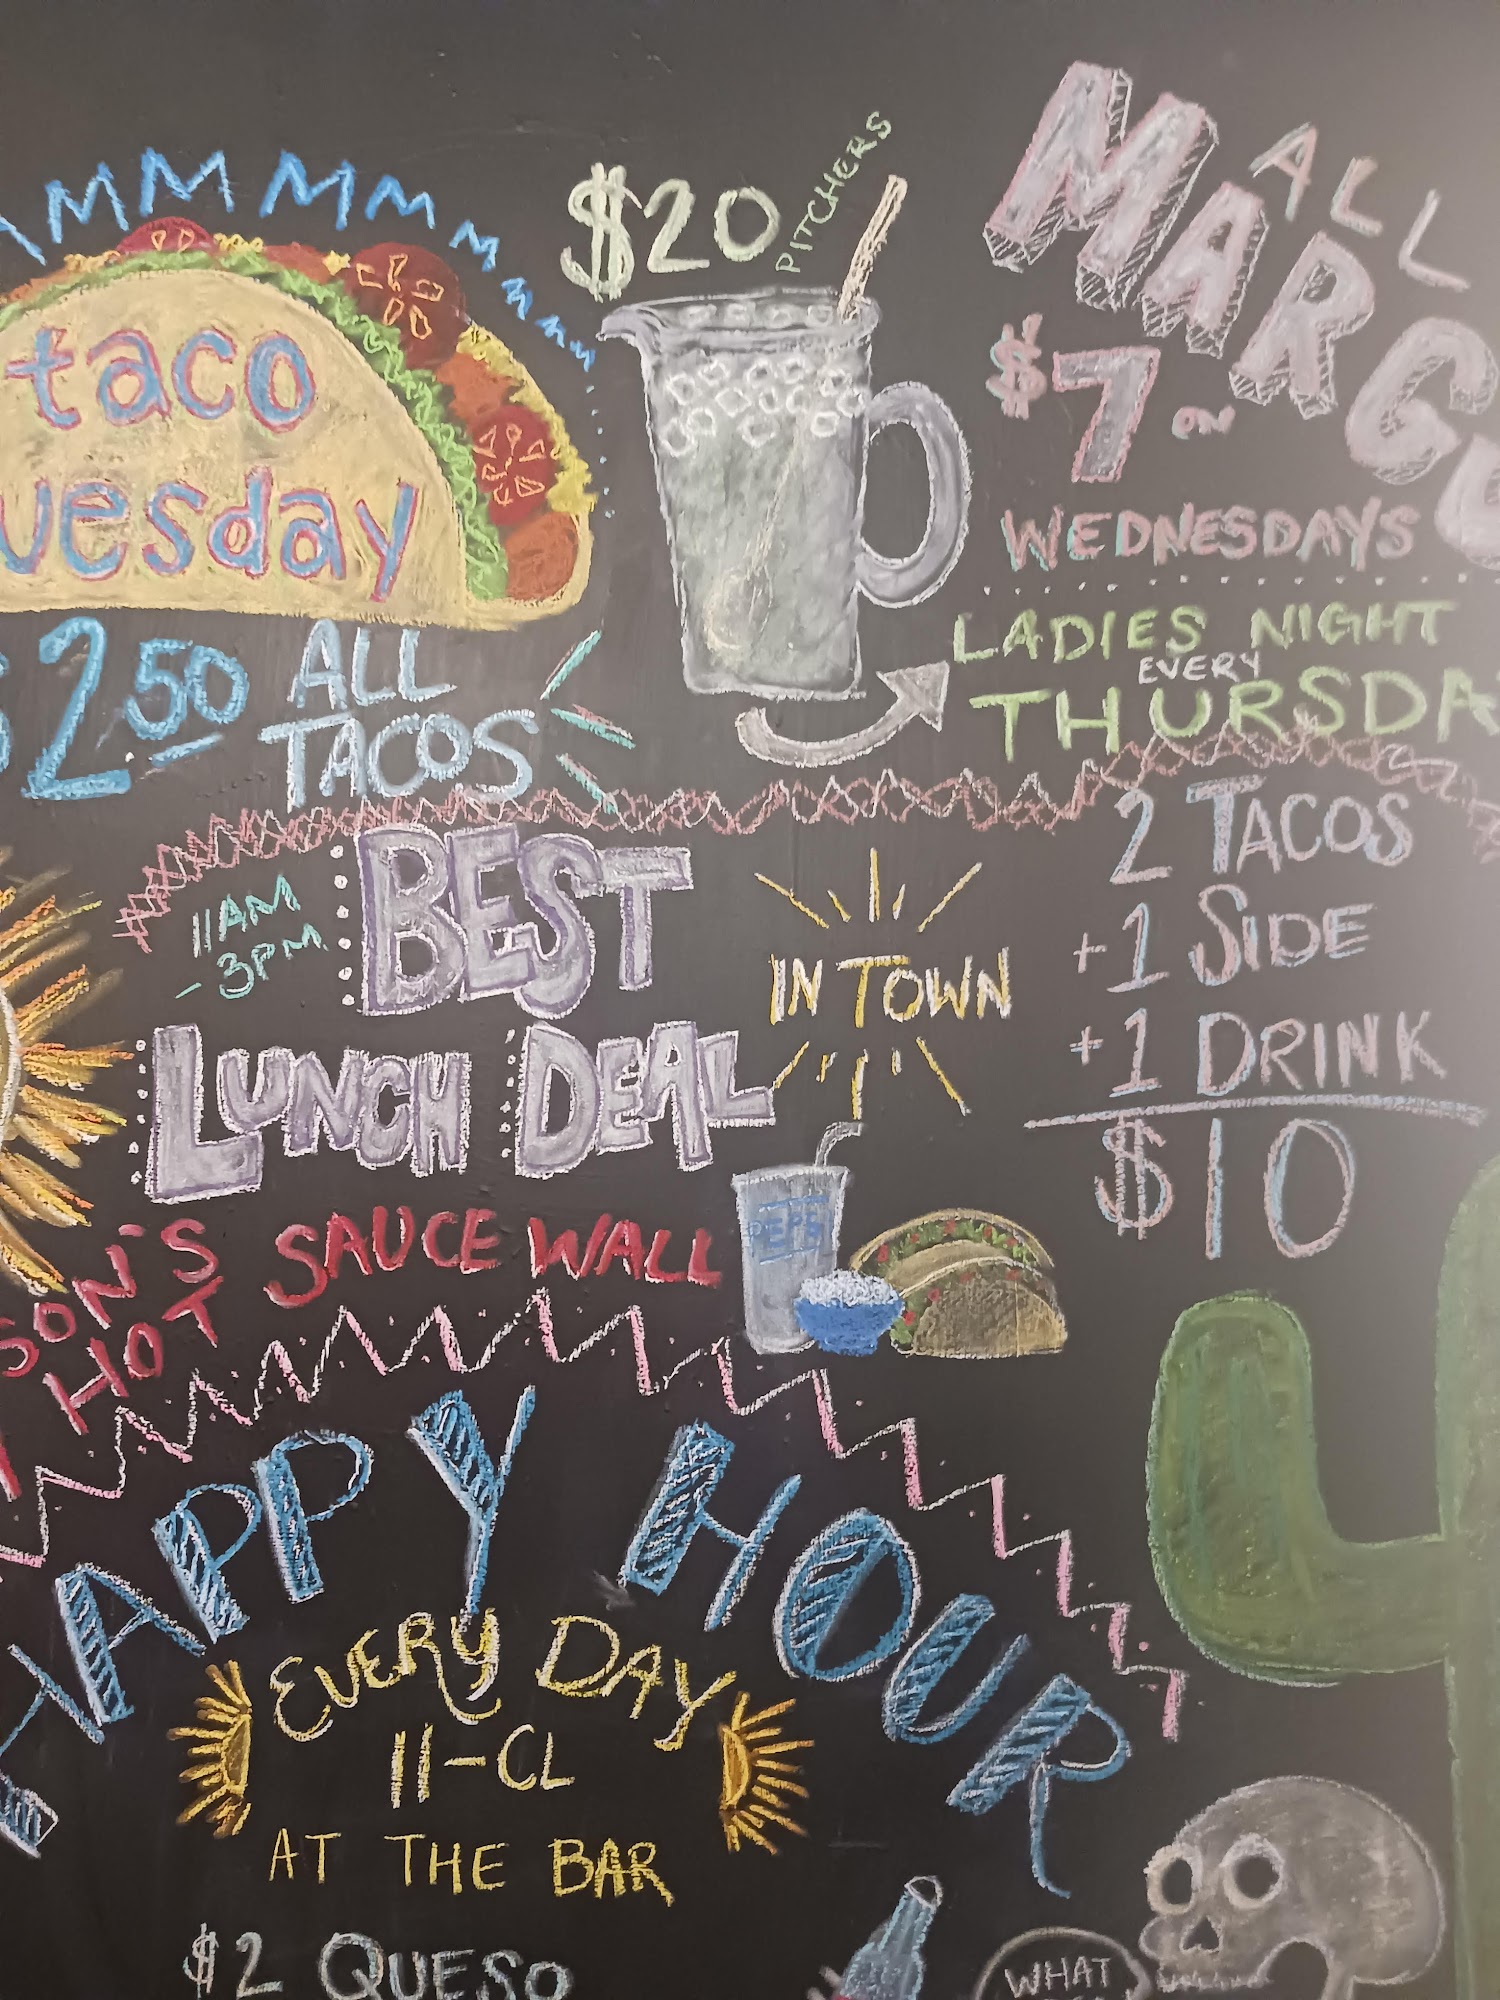 MMMMMmmmmm
taco
uesday
$2.50 ALL
TACOS
$20 PITCHERS
ALL
MARGU
$7 ON
WEDNESDAYS
LADIES NIGHT
EVERY
THURSDA
11AM
-3PM
BEST
LUNCH DEAL
IN TOWN
2 TACOS
+1 SIDE
+1 DRINK
$10
PEPSI
SON'S
HOT SAUCE WALL
HAPPY HOUR
EVERY DAY
11-CL
AT THE BAR
$2 QUESO
WHAT